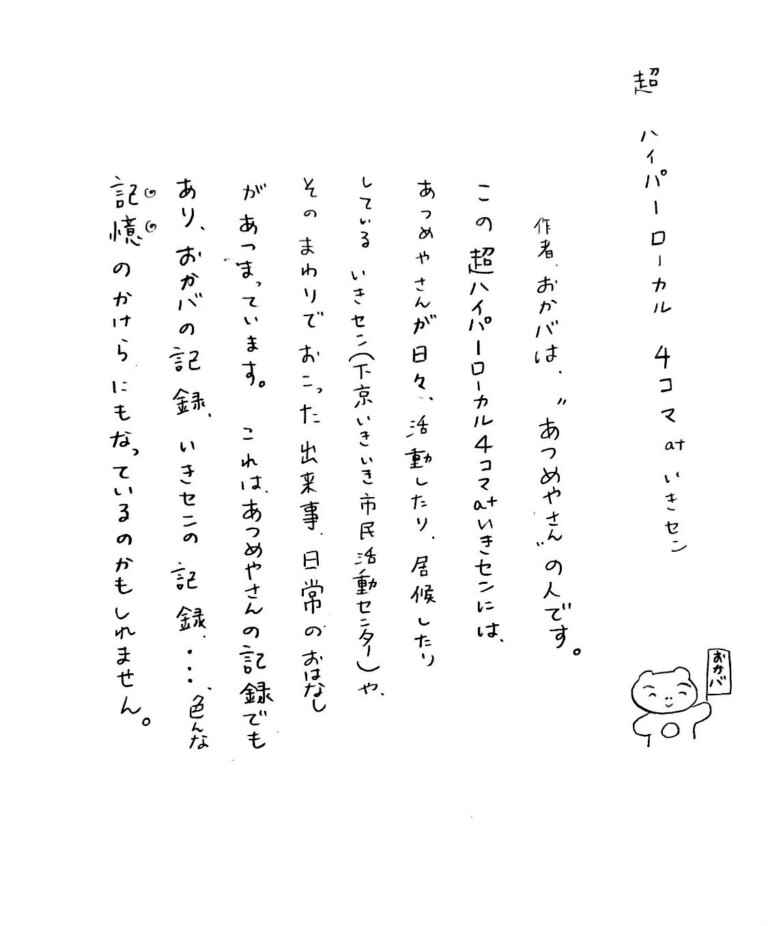 超 ハイパーローカル 4コマ at いきセン
おかバ
作者、おかバは、〝あつめやさん〟の人です。
この超ハイパーローカル4コマatいきセンには、
あつめやさんが日々、活動したり、居候したり
している いきセン(下京いきいき市民活動センター)や、
そのまわりでおこった出来事、日常のおはなし
があつまっています。 これは、あつめやさんの記録でも
あり、おかバの記録、いきセンの記録、・・・、色んな
記憶のかけらにもなっているのかもしれません。